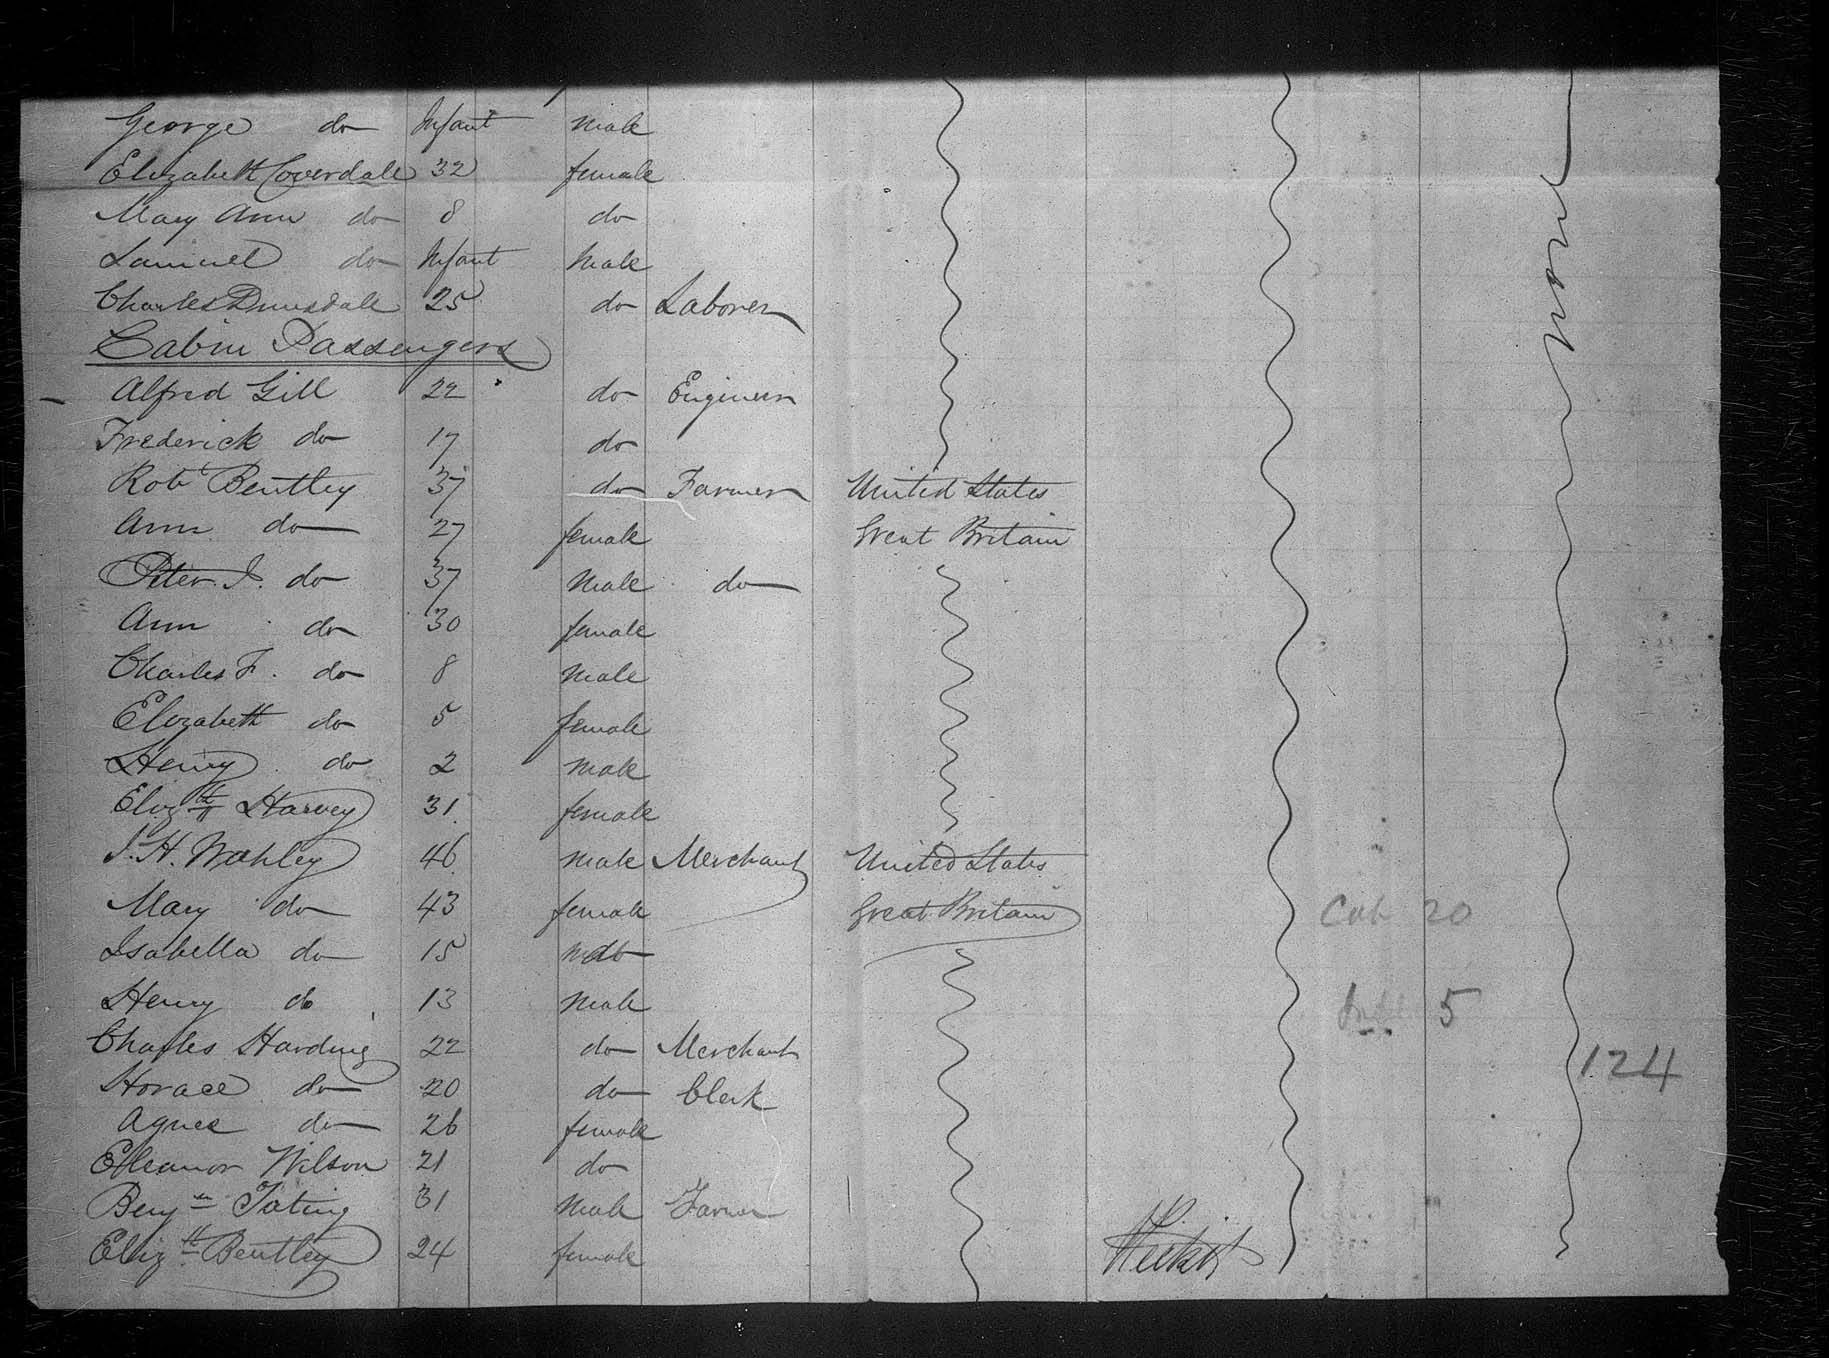 George do Infant male
Elizabeth Coverdale 32 female
Mary Ann do 8 do
Samuel do Infant Male
Charles Dunsdale 25 do Laborer
Cabin Passengers
Alfred Gill 22 do Engineer
Frederick do 17 do
Robt Bentley 37 do Farmer United States
Ann do 27 female Great Britain
Peter J. do 37 Male do
Ann do 30 female
Charles F. do 8 Male
Elizabeth do 5 female
Henry do 2 Male
Elizth Harvey 31 female
J. H. 46 Male Merchant United States
Mary do 43 female Great Britain
Isabella do 15 do
Henry do 13 Male
Charles Harding 22 do Merchant
Horace do 20 do Clerk
Agnes do 26 female
Elleanor Wilson 21 do
Benjn 31 Male Farmer
Elizth Bentley 24 female
None
Cab 20
5
124